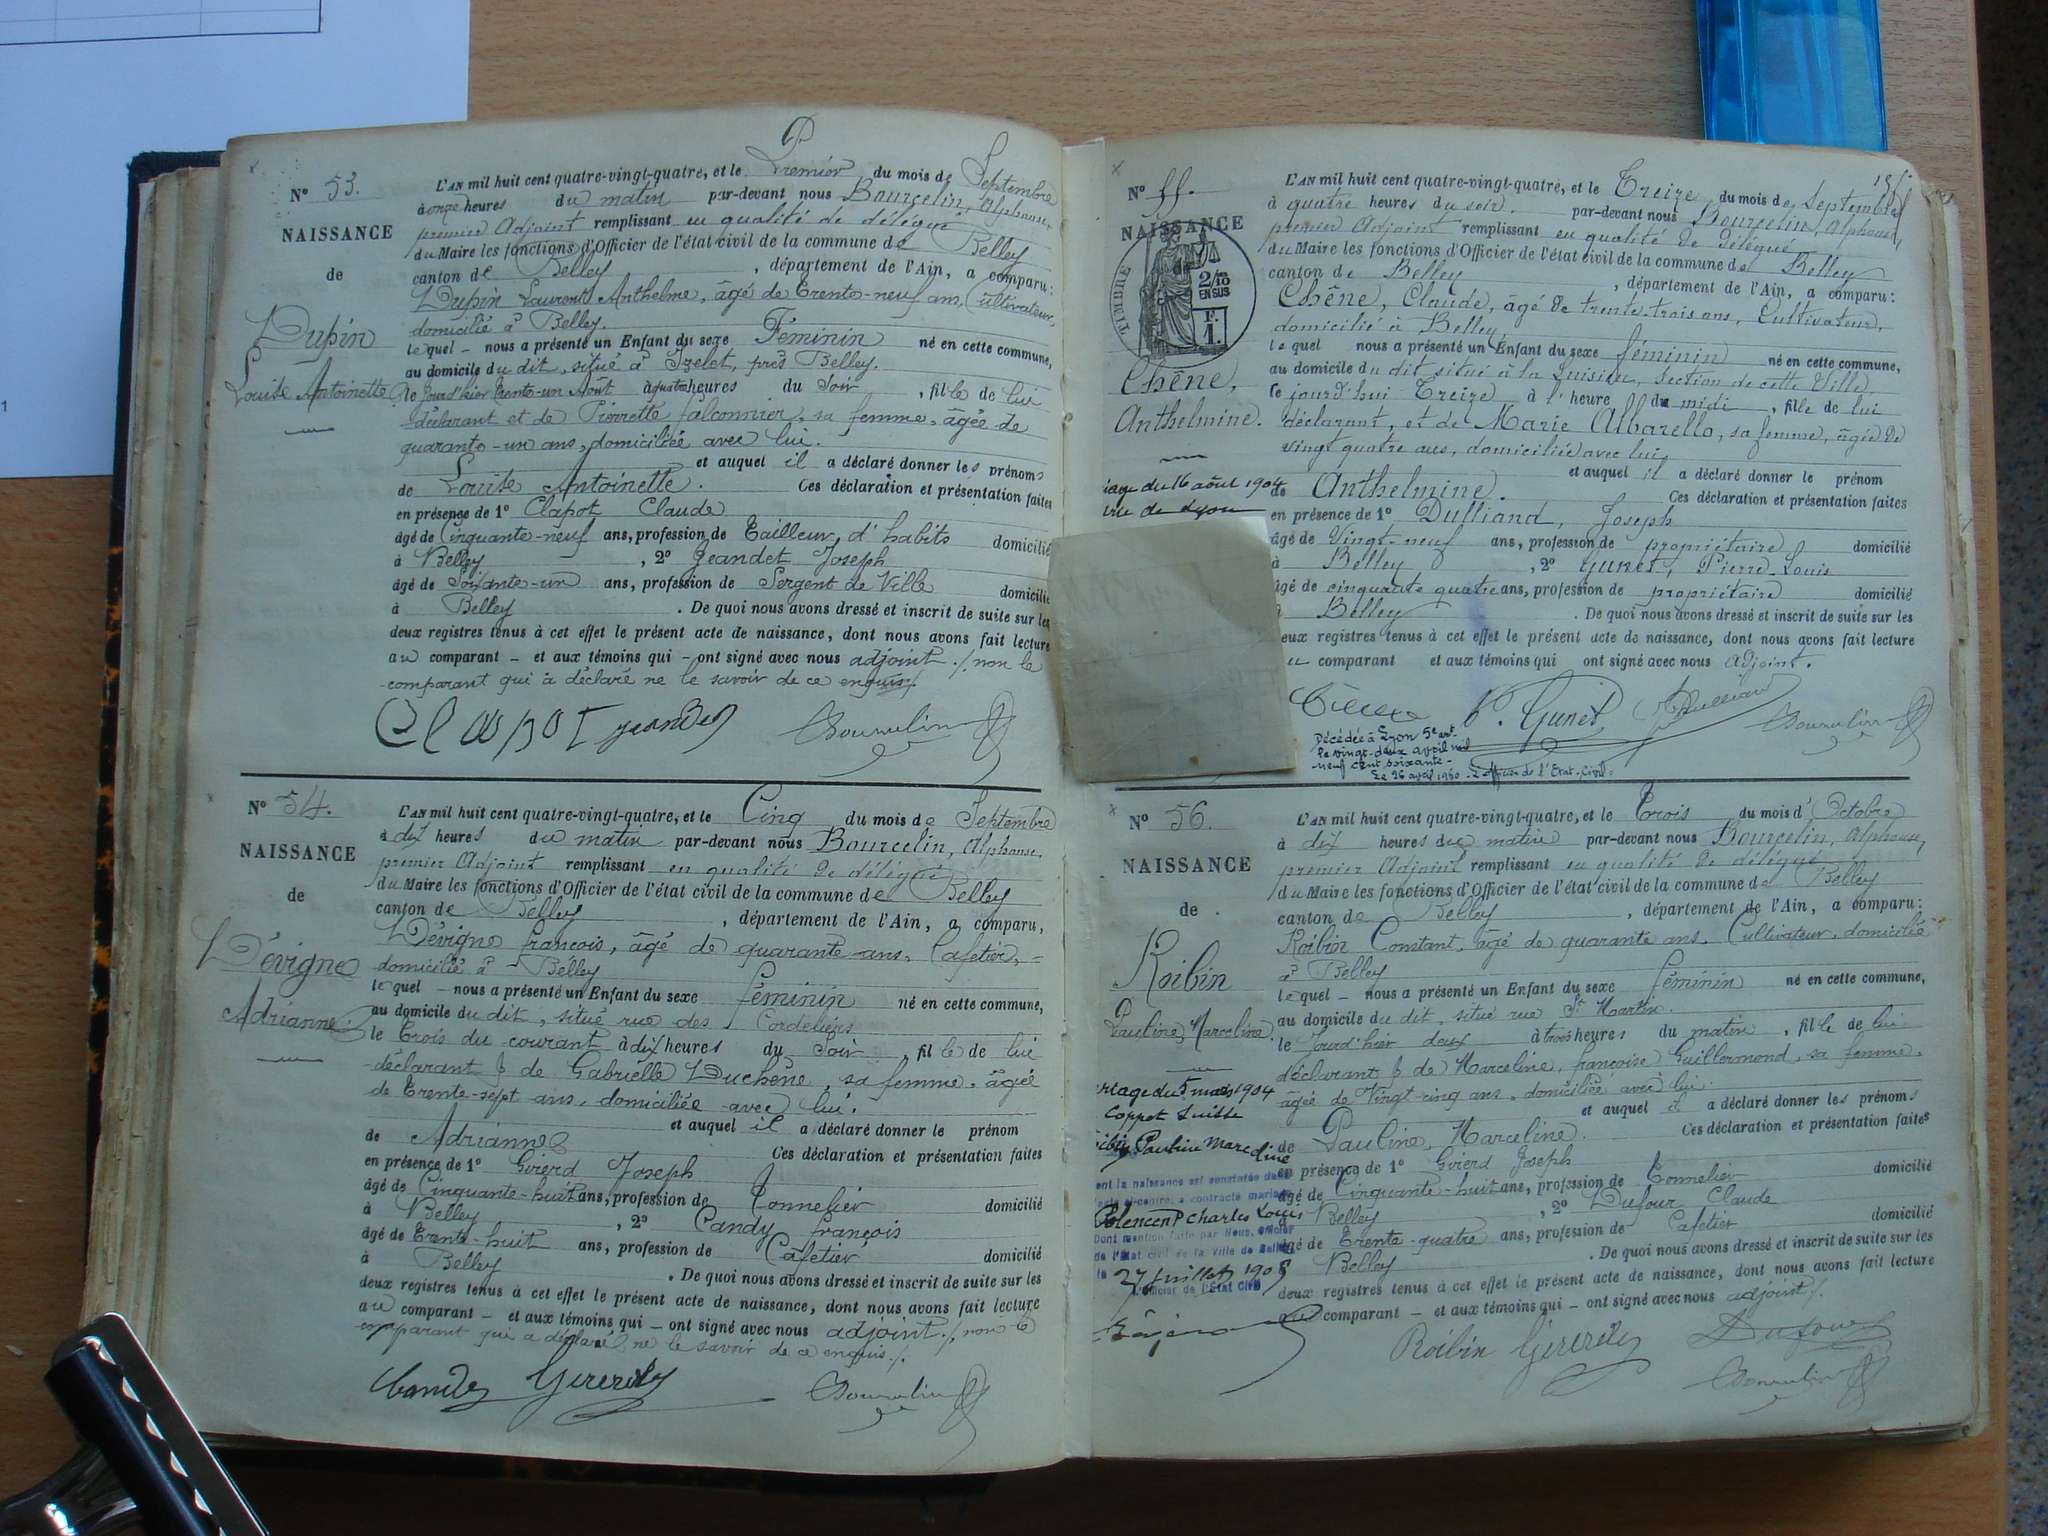 1
N° 53.
NAISSANCE
de
Dupin
Louise Antoinette
L'AN mil huit cent quatre-vingt-quatre, et le Premier du mois de Septembre
à onze heures du matin par-devant nous Bourcelin, Alphonse,
premier Adjoint remplissant en qualité de délégué
du Maire les fonctions d'Officier de l'état civil de la commune de Belley
canton de Belley, département de l'Ain, a comparu:
Dupin Laurent Anthelme, âgé de trente-neuf ans, Cultivateur,
domicilié à Belley.
lequel – nous a présenté un Enfant du sexe Féminin né en cette commune,
au domicile du dit, situé à près Belley.
le jourd'hier trente-un Août à quatre heures du Soir, fille de lui
déclarant et de Pierrette falconnier, sa femme, âgée de
quarante-un ans, domiciliée avec lui.
et auquel il a déclaré donner les prénoms
de Louise Antoinette. Ces déclaration et présentation faites
en présence de 1° Clapot Claude
âgé de Cinquante-neuf ans, profession de Tailleur d'habits domicilié
à Belley, 2° Jeandet Joseph
âgé de Soixante-un ans, profession de Sergent de Ville domicilié
à Belley. De quoi nous avons dressé et inscrit de suite sur les
deux registres tenus à cet effet le présent acte de naissance, dont nous avons fait lecture
au comparant – et aux témoins qui – ont signé avec nous adjoint ./. non le
comparant qui a déclaré ne le savoir de ce enquis ./.
Clapot Jeandet Bourcelin
N° 54.
NAISSANCE
de
Dévigne
Adrianne
L'AN mil huit cent quatre-vingt-quatre, et le Cinq du mois de Septembre
à dix heures du matin par-devant nous Bourcelin, Alphonse,
premier Adjoint remplissant en qualité de délégué
du Maire les fonctions d'Officier de l'état civil de la commune de Belley
canton de Belley, département de l'Ain, a comparu,
Dévigne françois, âgé de quarante ans, Cafetier,
domicilié à Belley
lequel – nous a présenté un Enfant du sexe féminin né en cette commune,
au domicile du dit, situé rue des Cordeliers
le Trois du courant à dix heures du Soir, fille de lui
déclarant & de Gabrielle Duchêne, sa femme, âgée
de Trente-sept ans, domiciliée avec lui.
et auquel il a déclaré donner le prénom
de Adrianne Ces déclaration et présentation faites
en présence de 1° Girerd Joseph
âgé de Cinquante-huit ans, profession de Tonnelier domicilié
à Belley, 2° Candy françois
âgé de Trente-huit ans, profession de Cafetier domicilié
à Belley. De quoi nous avons dressé et inscrit de suite sur les
deux registres tenus à cet effet le présent acte de naissance, dont nous avons fait lecture
au comparant – et aux témoins qui – ont signé avec nous adjoint ./. non le
comparant qui a déclaré ne le savoir de ce enquis ./.
Candy Girerd Bourcelin
N° 55.
NAISSANCE
de
TIMBRE
2/10
EN SUS
F.
1.
Chêne,
Anthelmine.
iage du 16 août 1904
de Lyon
L'AN mil huit cent quatre-vingt-quatre, et le Treize du mois de Septembre
à quatre heures du soir. par-devant nous Bourcelin, Alphonse,
premier Adjoint remplissant en qualité de délégué
du Maire les fonctions d'Officier de l'état civil de la commune de Belley
canton de Belley, département de l'Ain, a comparu:
Chêne, Claude, âgé de trente-trois ans, Cultivateur,
domicilié à Belley,
lequel nous a présenté un Enfant du sexe féminin né en cette commune,
au domicile du dit situé à la section de cette Ville
le jourd'hui Treize à l'heure du midi, fille de lui
déclarant, et de Marie Albarello, sa femme, âgée de
vingt quatre ans, domiciliée avec lui,
et auquel il a déclaré donner le prénom
de Anthelmine. Ces déclaration et présentation faites
en présence de 1° Dulliand, Joseph
âgé de Vingt-neuf ans, profession de propriétaire domicilié
à Belley, 2° Gunet, Pierre-Louis
âgé de cinquante quatre ans, profession de propriétaire domicilié
à Belley. De quoi nous avons dressé et inscrit de suite sur les
deux registres tenus à cet effet le présent acte de naissance, dont nous avons fait lecture
au comparant et aux témoins qui ont signé avec nous adjoint.
P. Gunet Dulliand Bourcelin
Décédée à Lyon 5e arrt
le vingt-deux avril mil
neuf cent soixante -
Le 26 avril 1960 - L'officier de l'Etat-Civil:
N° 56.
NAISSANCE
de
Roibin
Pauline, Marceline.
riage du 5 mars 1904
Coppet Suisse
Roibin Pauline Marceline
ent la naissance est constatée dans
l'acte ci-contre, a contracté mariage
Charles Louis
Dont mention faite par Nous, officier
de l'état civil de la Ville de Belley
le 27 Juillet 1908
L'Officier de l'État Civil
L'AN mil huit cent quatre-vingt-quatre, et le Trois du mois d'Octobre
à dix heures du matin par-devant nous Bourcelin, Alphonse,
premier Adjoint remplissant en qualité de délégué
du Maire les fonctions d'Officier de l'état civil de la commune de Belley
canton de Belley, département de l'Ain, a comparu:
Roibin Constant, âgé de quarante ans, Cultivateur, domicilié
à Belley
lequel – nous a présenté un Enfant du sexe féminin né en cette commune,
au domicile du dit, situé rue St Martin.
le jourd'hier deux à trois heures du matin, fille de lui
déclarant & de Marceline, françoise Guillermond, sa femme,
âgée de Vingt-cinq ans, domiciliée avec lui.
et auquel il a déclaré donner les prénoms
de Pauline, Marceline. Ces déclaration et présentation faites
en présence de 1° Girerd Joseph
âgé de Cinquante-huit ans, profession de Tonnelier domicilié
à Belley, 2° Dufour Claude
âgé de Trente-quatre ans, profession de Cafetier domicilié
à Belley. De quoi nous avons dressé et inscrit de suite sur les
deux registres tenus à cet effet le présent acte de naissance, dont nous avons fait lecture
au comparant – et aux témoins qui – ont signé avec nous adjoint ./.
Roibin Girerd Dufour
Bourcelin